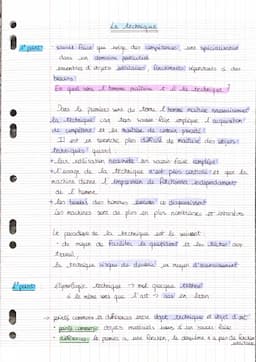 La technique
1° point
- savoir faire qui exige des compétences, une spécialisation
dans un domaine particulier
- ensembles d'objets utilitaires, fonctionnels répondants à des
besoins
En quel sens l'homme maîtrise-t-il la technique ?
Dans le premier sens du terme l'homme maîtrise nécessairement
la technique car tout savoir faire implique l'acquisition
de compétence et de maîtrise de certain procédé
Il est en revanche plus difficile de maîtriser des objets
techniques quand :
+ leur utilisation nécessite un savoir faire complexe
+ l'usage de la technique n'est plus contrôlé et que la
machine donne l'impression de fonctionner indépendamment
de l'homme
+ les besoins des hommes
les machines sont de plus en plus nombreuses et
Le paradoxe de la technique est le suivant :
- de moyen de faciliter le quotidien et les tâches au
travail,
- la technique risque de devenir un moyen d'asservissement
2° point
étymologie technique → mot grecque
a le même sens que l'art → ars en latin
→ points communs et différences entre objet technique et objet d'art
- points communs objets matériels issus d'un savoir faire
- différences le premier a une fonction, le deuxième n'a pas de fonction